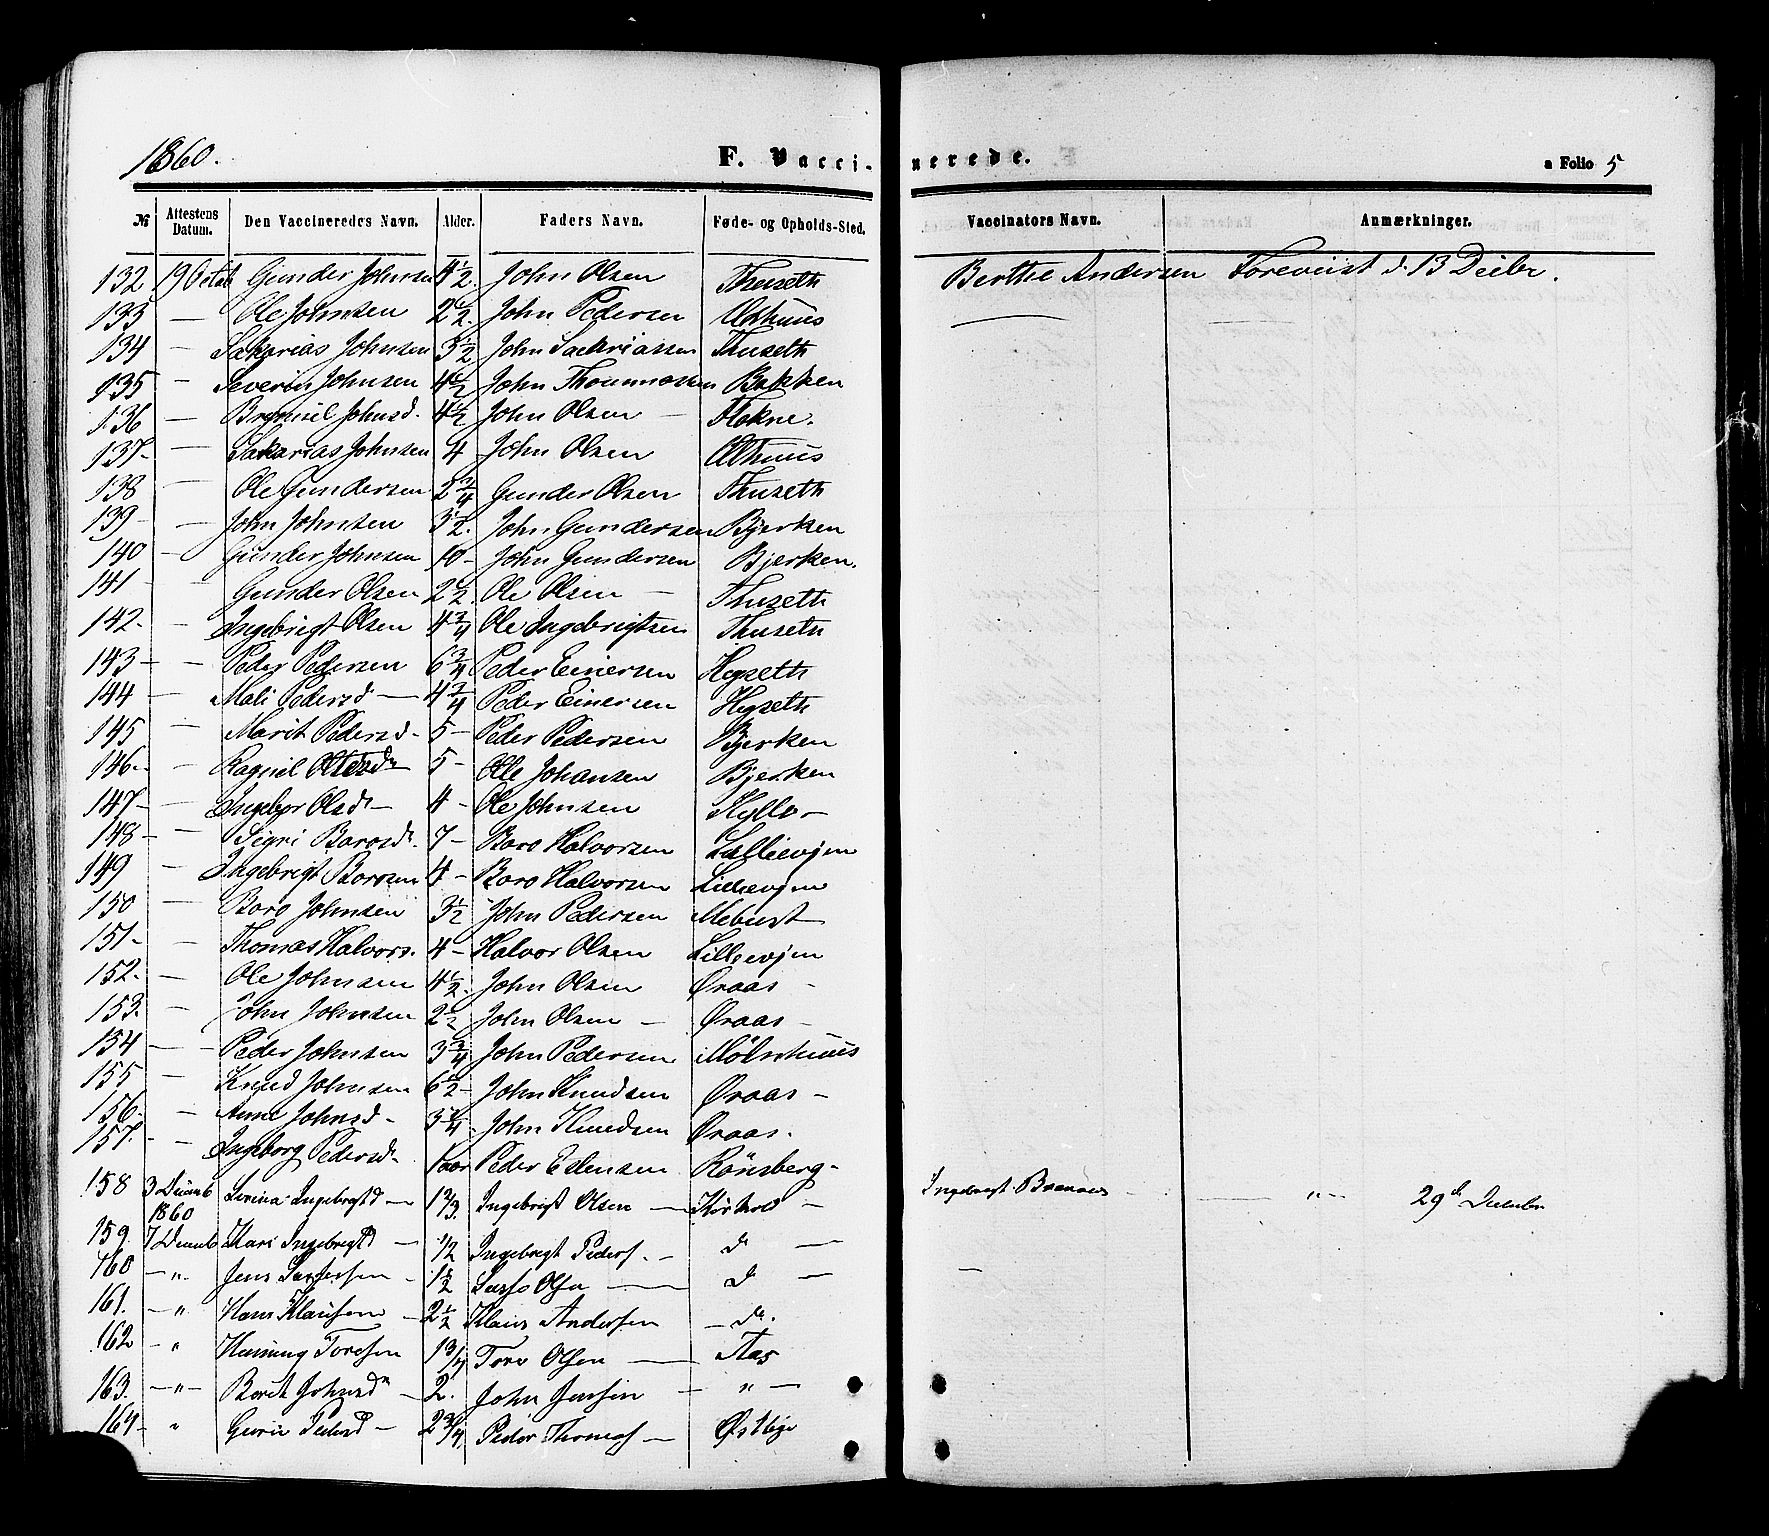 1860. F. Vacci- nerede. a Folio 5
№ Attestens Datum. Den Vaccineredes Navn. Alder. Faders Navn. Føde- og Opholds-Sted. Vaccinators Navn. Anmærkninger.
132 19 Octob Gunder Johnsen 4 1/2. John Olsen Thuseth Berthe Andersen Foreviist d. 13 Decbr.
133 — Ole Johnsen 2 1/2. John Pedersen Althuus — —
134 — Sakarias Johnsen 3 1/2 John Sackriassen Thuseth
135 — Severin Johnsen 4 1/2 John Thoummassen Bakken
136 — Johnsd. 4 1/2 John Olsen — Flokne.
137- — Sakarias Johnsen 4 John Olsen Althuus
138 — Ole Gundersen 2 3/4 Gunder Olsen Thuseth
139- — John Johnsen 3 1/2. John Gundersen Bjerken
140 — Gunder Johnsen 10- John Gundersen Bjerken.
141 — Gunder Olsen 2 1/2 Ole Olsen — Thuseth
142- — Ingebrigt Olsen 4 3/4 Ole Ingebrigtsen Thuseth
143- — Peder Pedersen 6 3/4 Peder Einersen Hegseth
144 — Mali Pedersd — 4 3/4 Peder Einersen Hegseth
145 — Marit Pedersd- 5- Peder Pedersen Bjerken
146- — Ragnil Olsdr 5- Ole Johansen Bjerken
147- — Ingebor Olsdr- 4- Ole Johnsen Hyllo-
148- — Sigri Barosdr. 7- Baro Halvorsen Lillievjen
149 — Ingebrigt Barosen 4- Baro Halvorsen Lillievjen
150 — Baro Johnsen 3 1/2 John Pedersen Mebust
151- — Thomas Halvors. 4- Halvor Olsen Lillievjen
152- — Ole Johnsen 4 1/2. John Olsen Øraas -
153. — John Johnsen 2 1/2 John Olsen — Øraas -
154 — Peder Johnsen 3 3/4 John Pedersen Mölnhuus
155 — Knud Johnsen 6 1/2- John Knudsen Øraas -
156- — Anne Johnsd- 3 1/4 John Knudsen Øraas.
157. — Ingeborg Pedersdr 1 aar Peder Estensen Rönsberg-
158 3 Decemb 1860 Ingebrigtd — 1 2/3. Ingebrigt Olsen — — Ingebrigt — „ — 29de December
159. 7 Decemb Kari Ingebrigtd — 1/2 Ingebrigt Peders. — d —
160 — „. Jens Larsen - 1 1/2 Olsen — d —
161. — „ Hans Klausen — 2 1/2 Klaus Andersen — do.
162 — „ Henning Toresen 1 3/4 Tore Olsen — Aas
163. — „ — Berit Johnsdr — 2. John Jensen — „ —
164- „ Gurie Pedersd — 2 3/4. Peder Thomas —